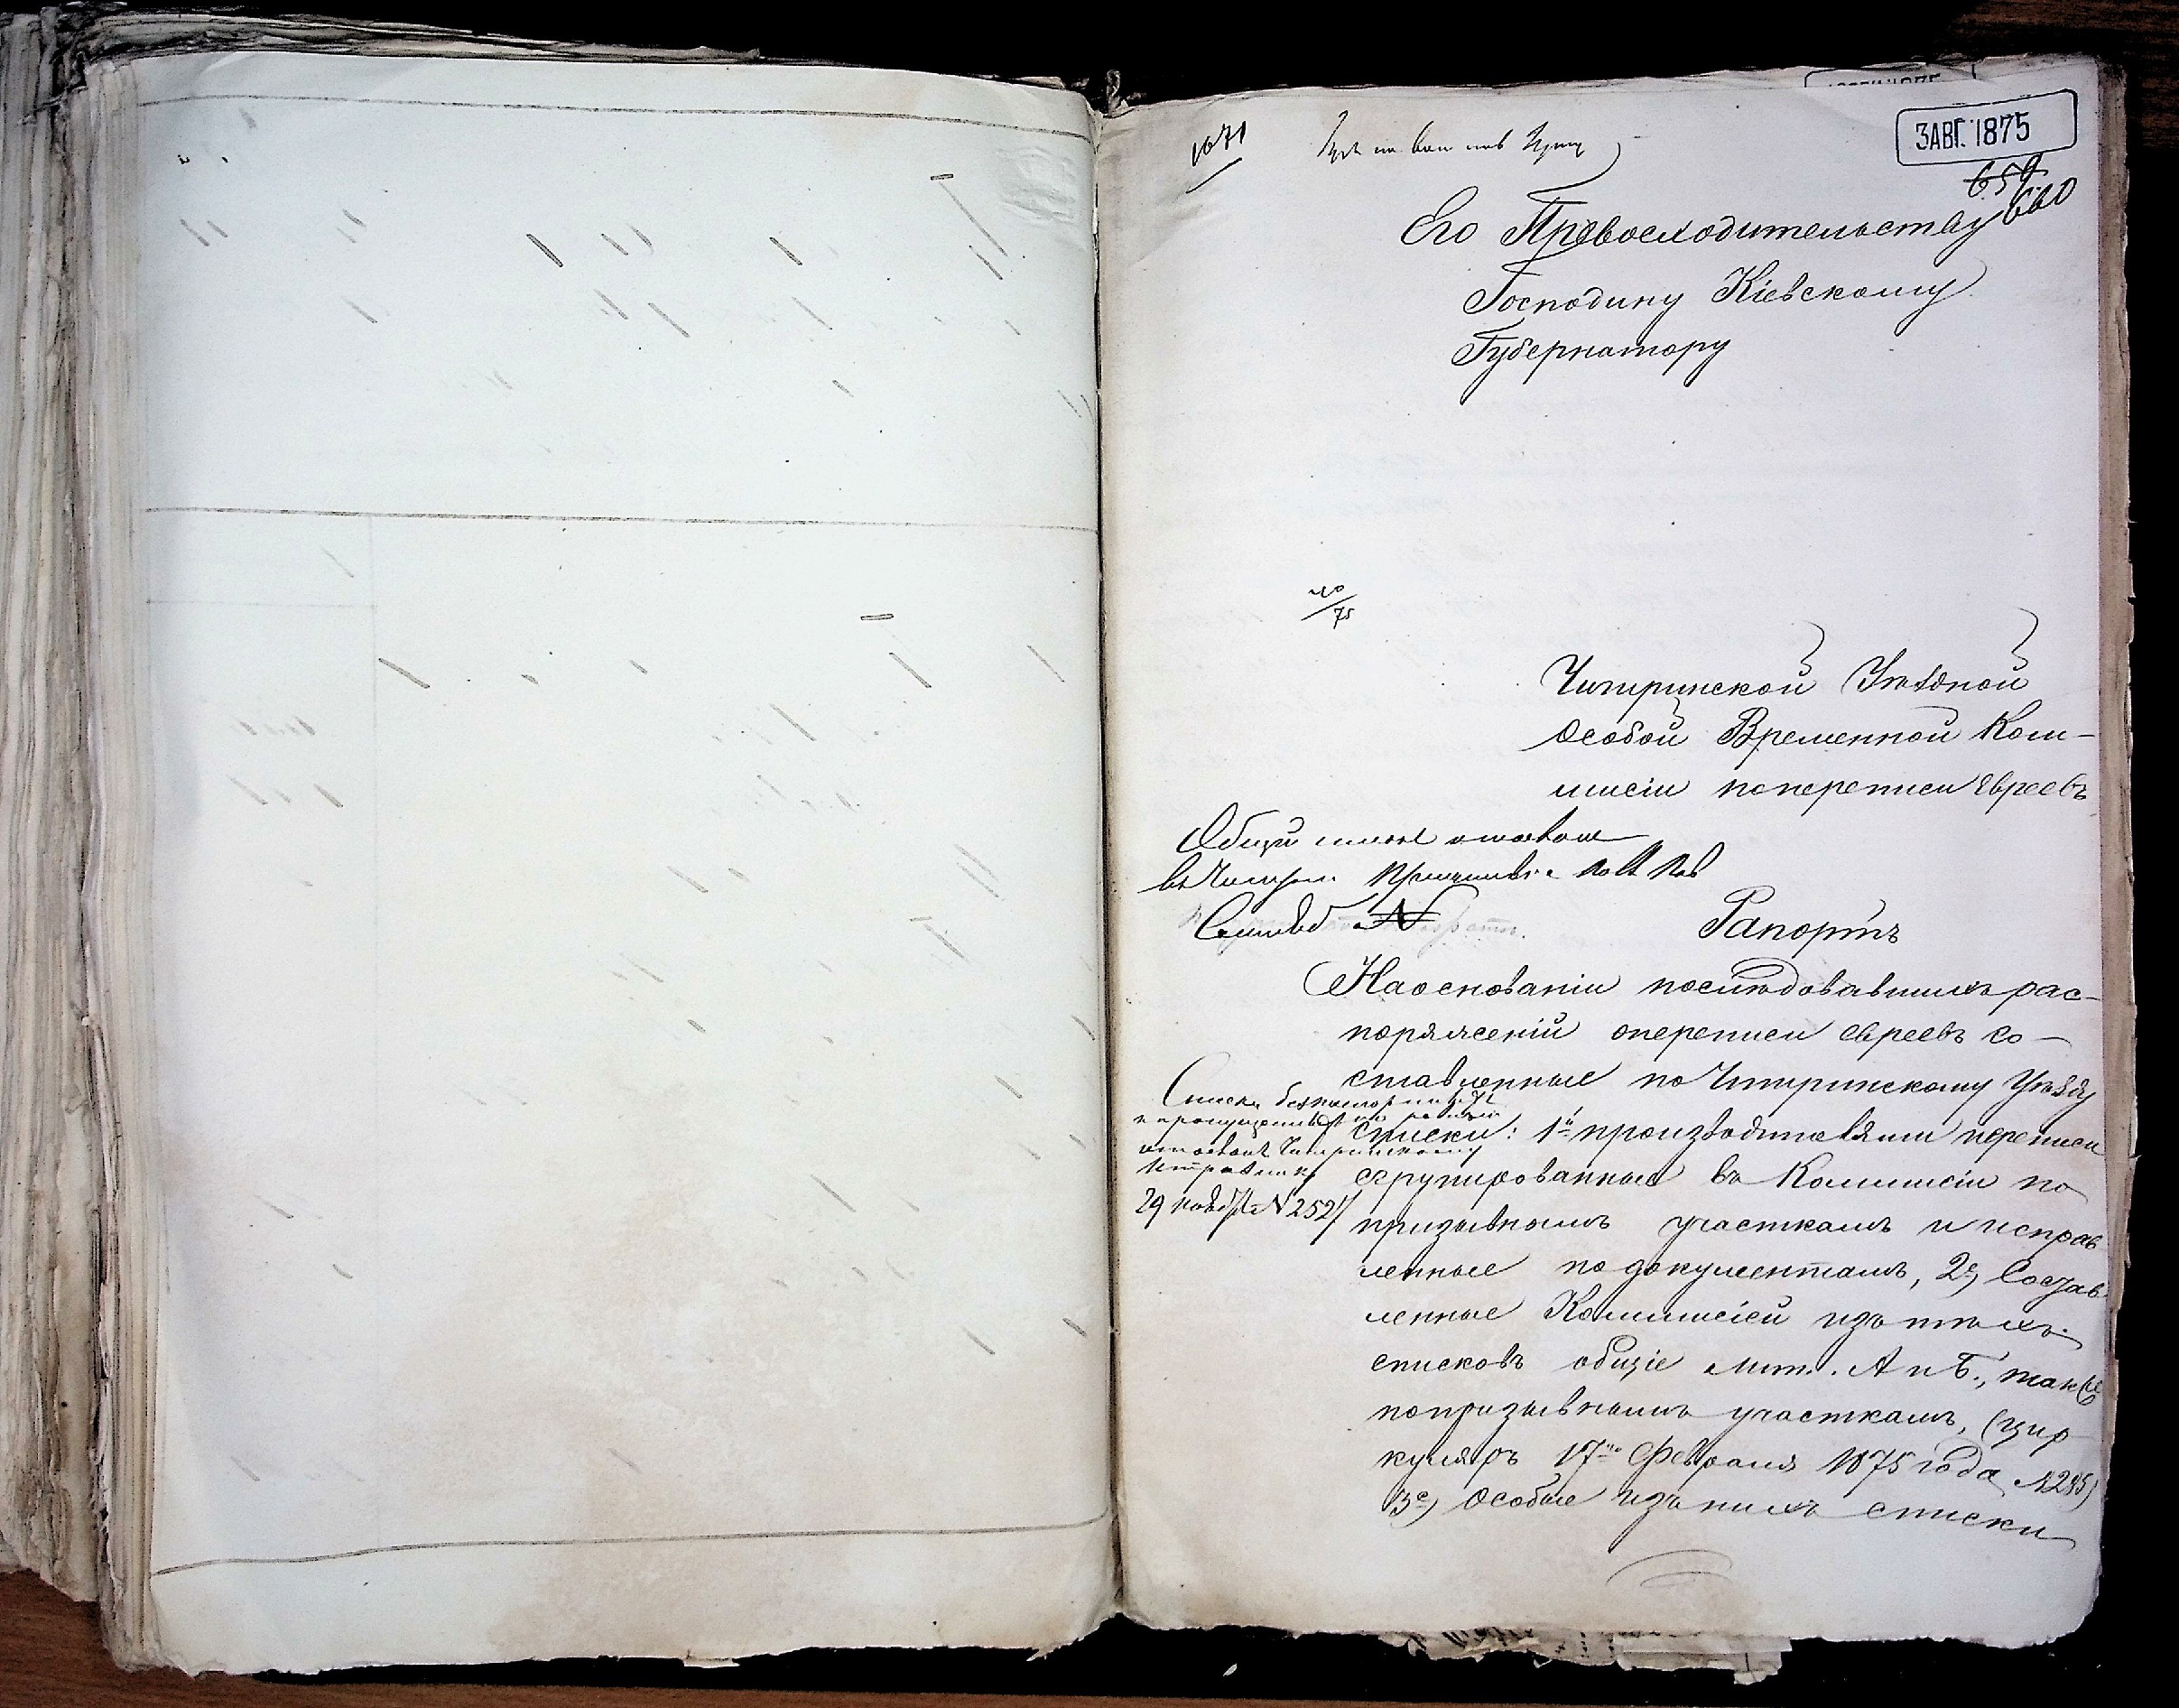 1671
3 АВГ. 1875
659
660
Его Превосходительству
Господину Кіевскому
Губернатору
75
Чигиринской Уѣздной
Особой Временной Ком-
мисіи по переписи Евреевъ
Общій
въ Чигир.
Рапортъ
На основаніи послѣдовавшихъ рас-
поряженій о переписи евреевъ со-
ставленные по Чигиринскому Уѣзду
списки: 1е производителями переписи
сгрупированные въ Коммисіи по
призывнымъ участкамъ и исправ
ленные по документамъ, 2е) Состав
ленные Коммисіей изъ тѣхъ
списковъ общіе лит. А и Б., также
по призывнымъ участкамъ, (цир
куляръ 17го Февраля 1875 года №245)
3е) Особые изъ нихъ списки
Списки
Чигиринскому
Исправнику
29 ноября № 2521